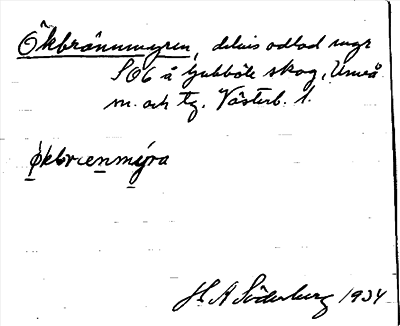 Ökbrännmyren, delvis odlad myr
S O6 å Gubböle skog, Umeå
m. och tg. Västerb. l.
økbrænmýra
H. A Söderberg 1934